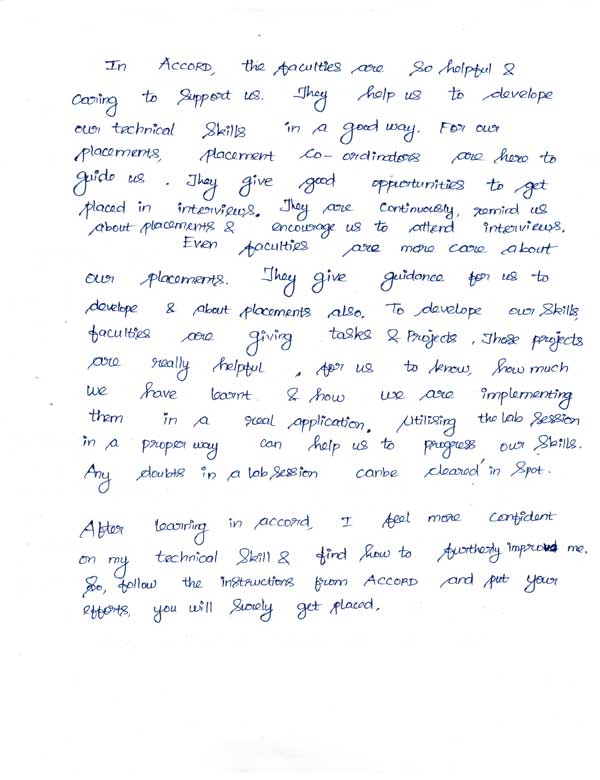 In ACCORD, the faculties are so helpful &
caring to support us. They help us to develope
our technical skills in a good way. For our
placements, placement co-ordinators are here to
guide us. They give good opportunities to get
placed in interviews. They are continuously, remind us
about placements & encourage us to attend interviews.
Even faculties are more care about
our placements. They give guidance for us to
develope & about placements also. To develope our skills,
faculties are giving tasks & Projects. Those projects
are really helpful, for us to know, how much
we have learnt & how we are implementing
them in a real application. Utilising the lab session
in a proper way can help us to progress our skills.
Any doubts in a lab session canbe cleared in spot.
After learning in accord, I feel more confident
on my technical skill & find how to furtherly improve me.
So, follow the instructions from ACCORD and put your
efforts, you will surely get placed.